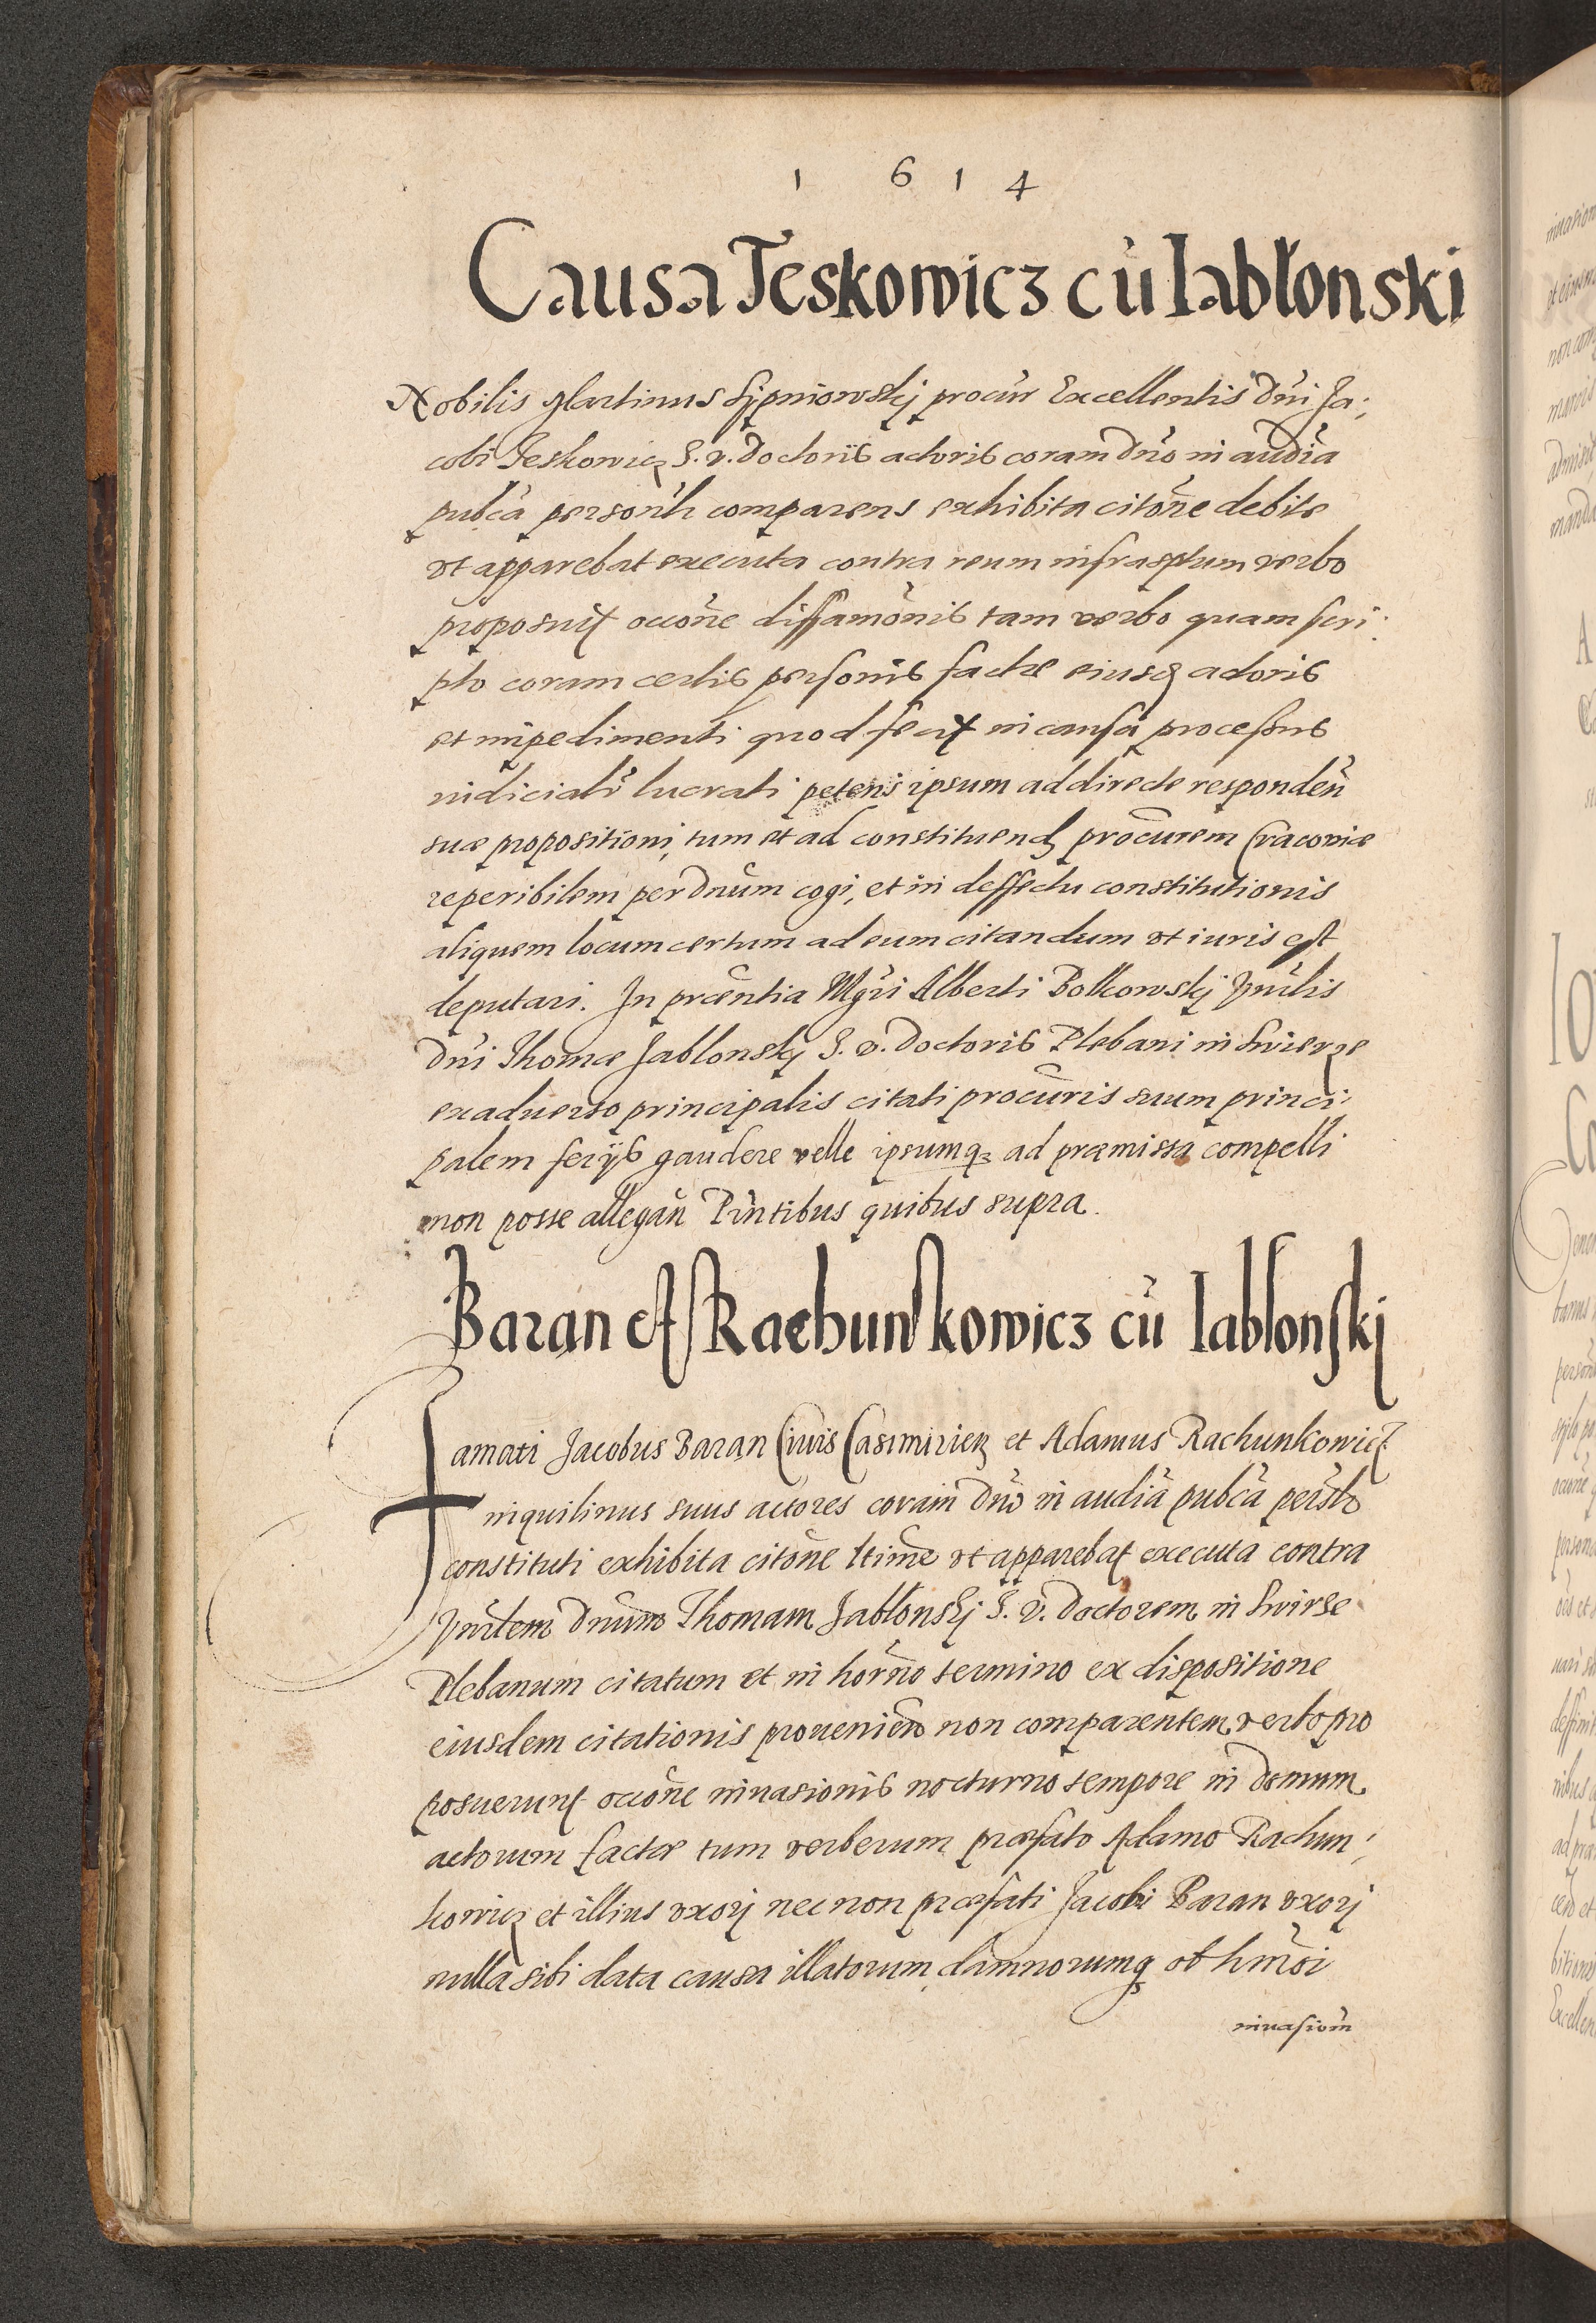 1 6 1 4
Causa Jeskowicz cū Iablonski
Nobilis Martinus Sipniowskj procur Excellentis Dnī Ja:
cobi Jeskowicz J. v. Doctoris actoris coram Dnō in audīa
pubcā personlr comparens exhibita citōne debite
vt apparebat executa contra reum infrasptum verbo
proposuit occōne diffamōnis tam verbo quam scri:
pto coram certis personis factæ eiusq actoris
et impedimenti quod fecit in causa processus
iudicialr lucrati petens ipsum ad directe respondēn
suæ propositioni, tum et ad constituend procurem Cracoviæ
reperibilem per Dnūm cogi, et in deffectu constitutionis
aliquem locum certum ad eum citandum vt iuris est
deputari. In præntia Mgri Alberti Bolkowskj Vnrlis
Dnī Thomæ Jablonskj J. v. Doctoris Plebani in Swierze
ex aduerso principalis citati procūris suum princi:
palem ferijs gaudere velle ipsumq3 ad præmissa compelli
non posse allegan̄ Pn̄tibus quibus supra.
Baran et Rachunkowicz cū Iablonskj
Famati Jacobus Baran Ciuis Casimirien et Adamus Rachunkowicz
inquilinus suus actores coram Dnō in audīa pubcā perslr
constituti exhibita citōne ltime vt apparebat executa contra
Vnrlem Dnūm Thomam Jablonskj J. V. Doctorem in Swirze
Plebanum citatum et in hornō termino ex dispositione
eiusdem citationis prouenien non comparentem verbo pro
posuerunt occōne inuasionis nocturno tempore in domum
actorum factæ tum verberum præfato Adamo Rachun:
kowicz et illius vxorj nec non præfati Jacobi Baran vxorj
nulla sibi data causa illatorum damnorumq ob hmōi
inuasiom